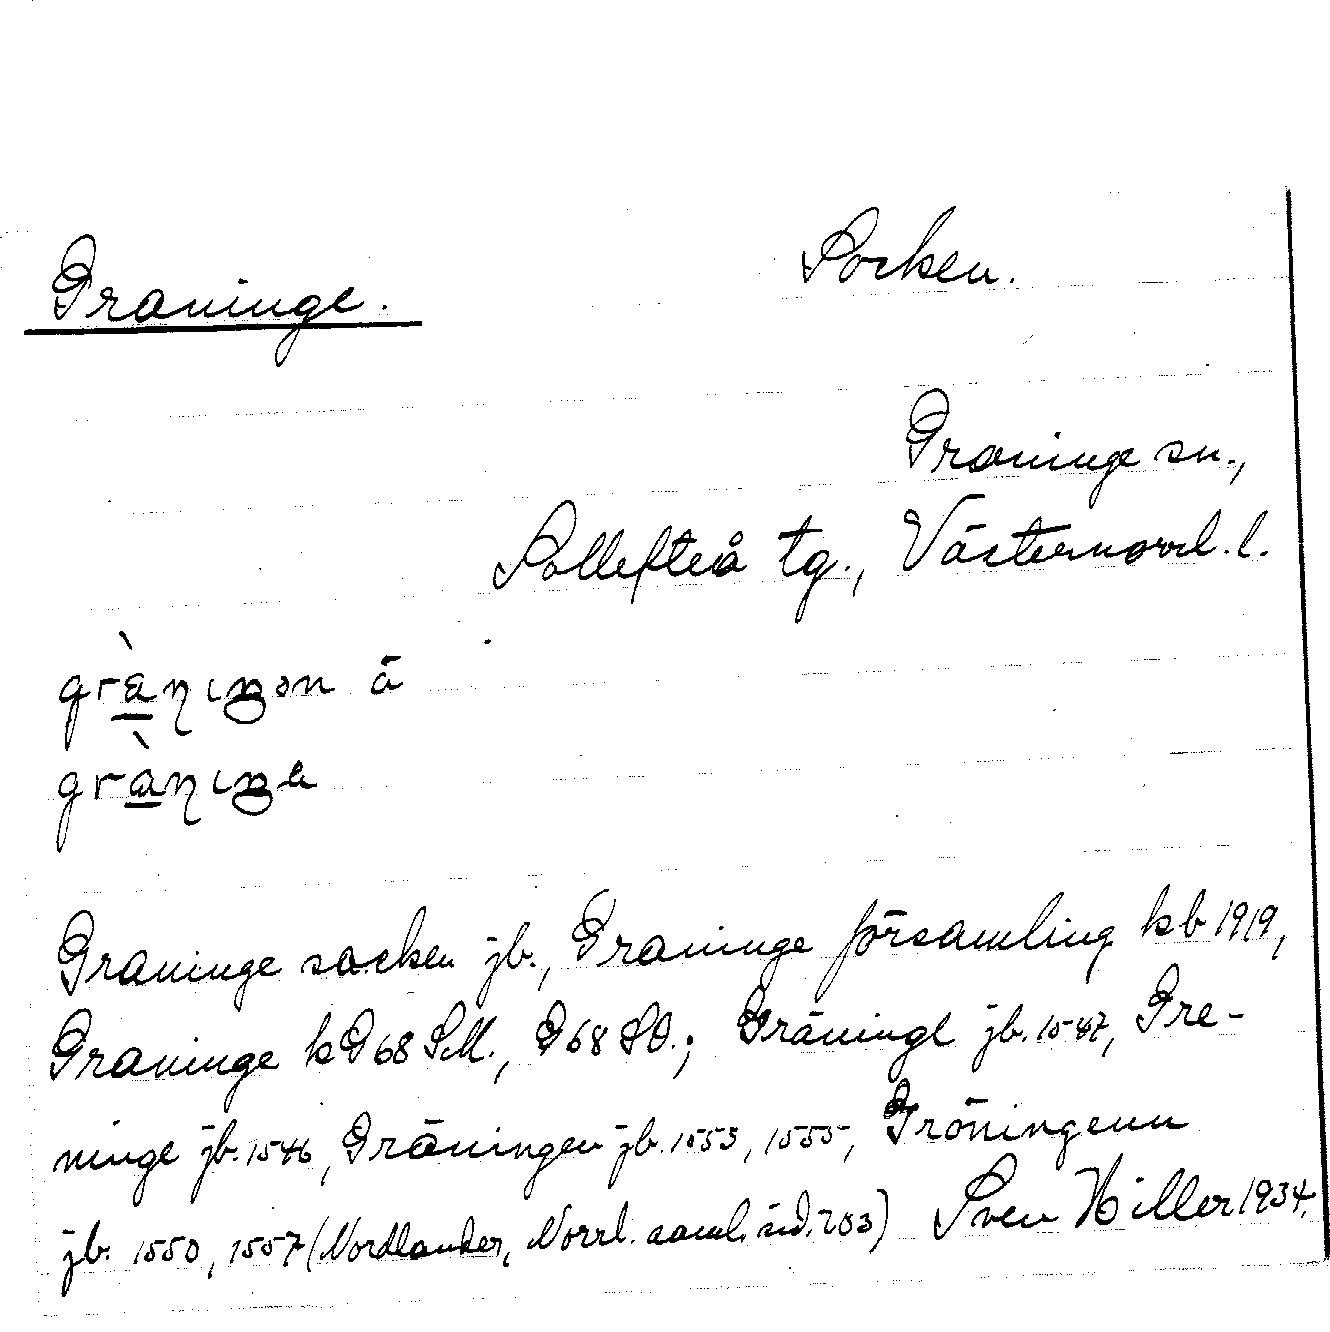 Graninge. Socken.
Graninge sn.,
Sollefteå tg., Västernorrl. l.
grànıŋən ä
grànıŋe
Graninge socken jb., Graninge församling kb 1919,
Graninge k G68 SM., G68 SO.; Gräninge jb. 1547, Gre-
ninge jb. 1546, Gräningen jb. 1553, 1555, Gröningenn
jb. 1550, 1557 (Nordlander, Norrl. saml. s. 203) Sven Hiller 1934.